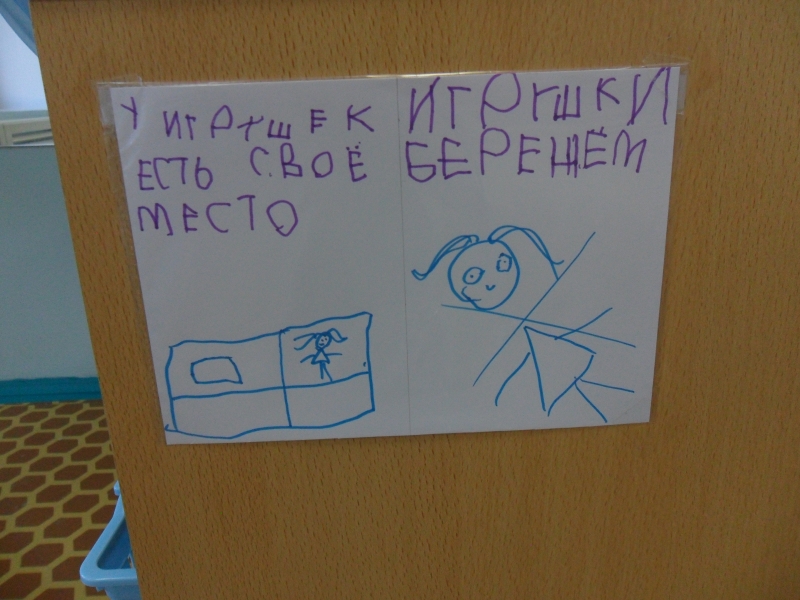 У ИГРУШЕК
ЕСТЬ СВОЁ
МЕСТО
ИГРУШКИ
БЕРЕЖЁМ